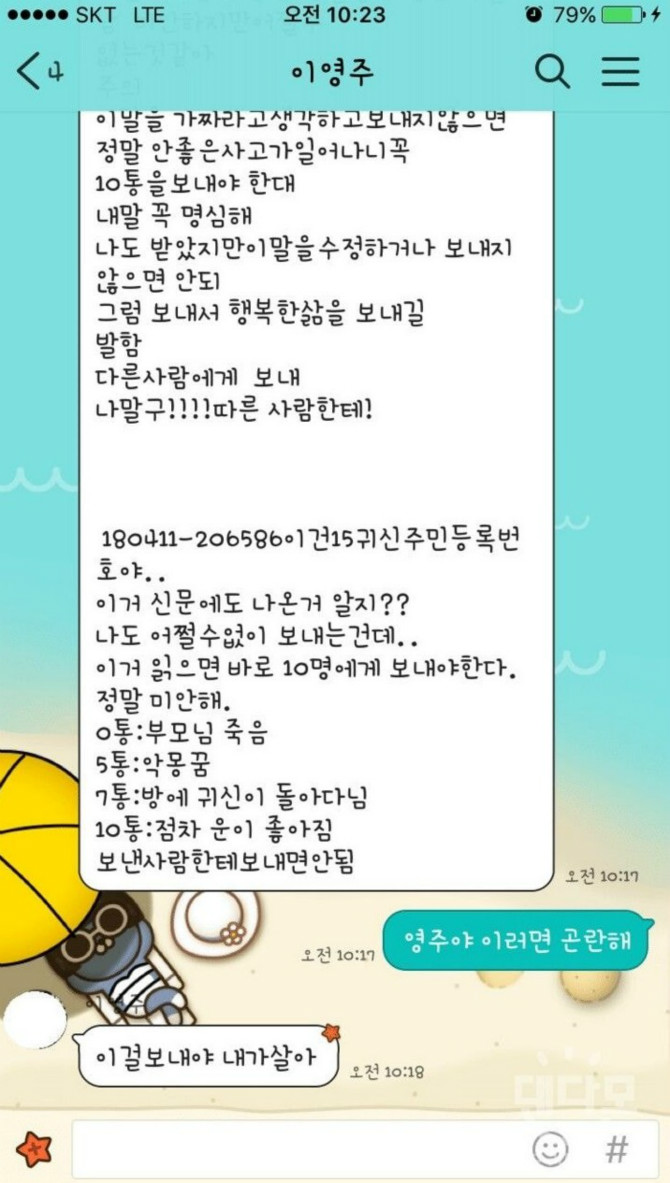 SKT LTE 오전 10:23 79%
4 이영주
이말을 가짜라고생각하고보내지않으면
정말 안좋은사고가일어나니꼭
10통을보내야 한대
내말 꼭 명심해
나도 받았지만이말을수정하거나 보내지
않으면 안되
그럼 보내서 행복한삶을 보내길
발함
다른사람에게 보내
나말구!!!!따른 사람한테!
180411-206586이건15귀신주민등록번
호야..
이거 신문에도 나온거 알지??
나도 어쩔수없이 보내는건데..
이거 읽으면 바로 10명에게 보내야한다.
정말 미안해.
0통:부모님 죽음
5통:악몽꿈
7통:방에 귀신이 돌아다님
10통:점차 운이 좋아짐
보낸사람한테보내면안됨
오전 10:17
영주야 이러면 곤란해
오전 10:17
이걸보내야 내가살아
오전 10:18
#